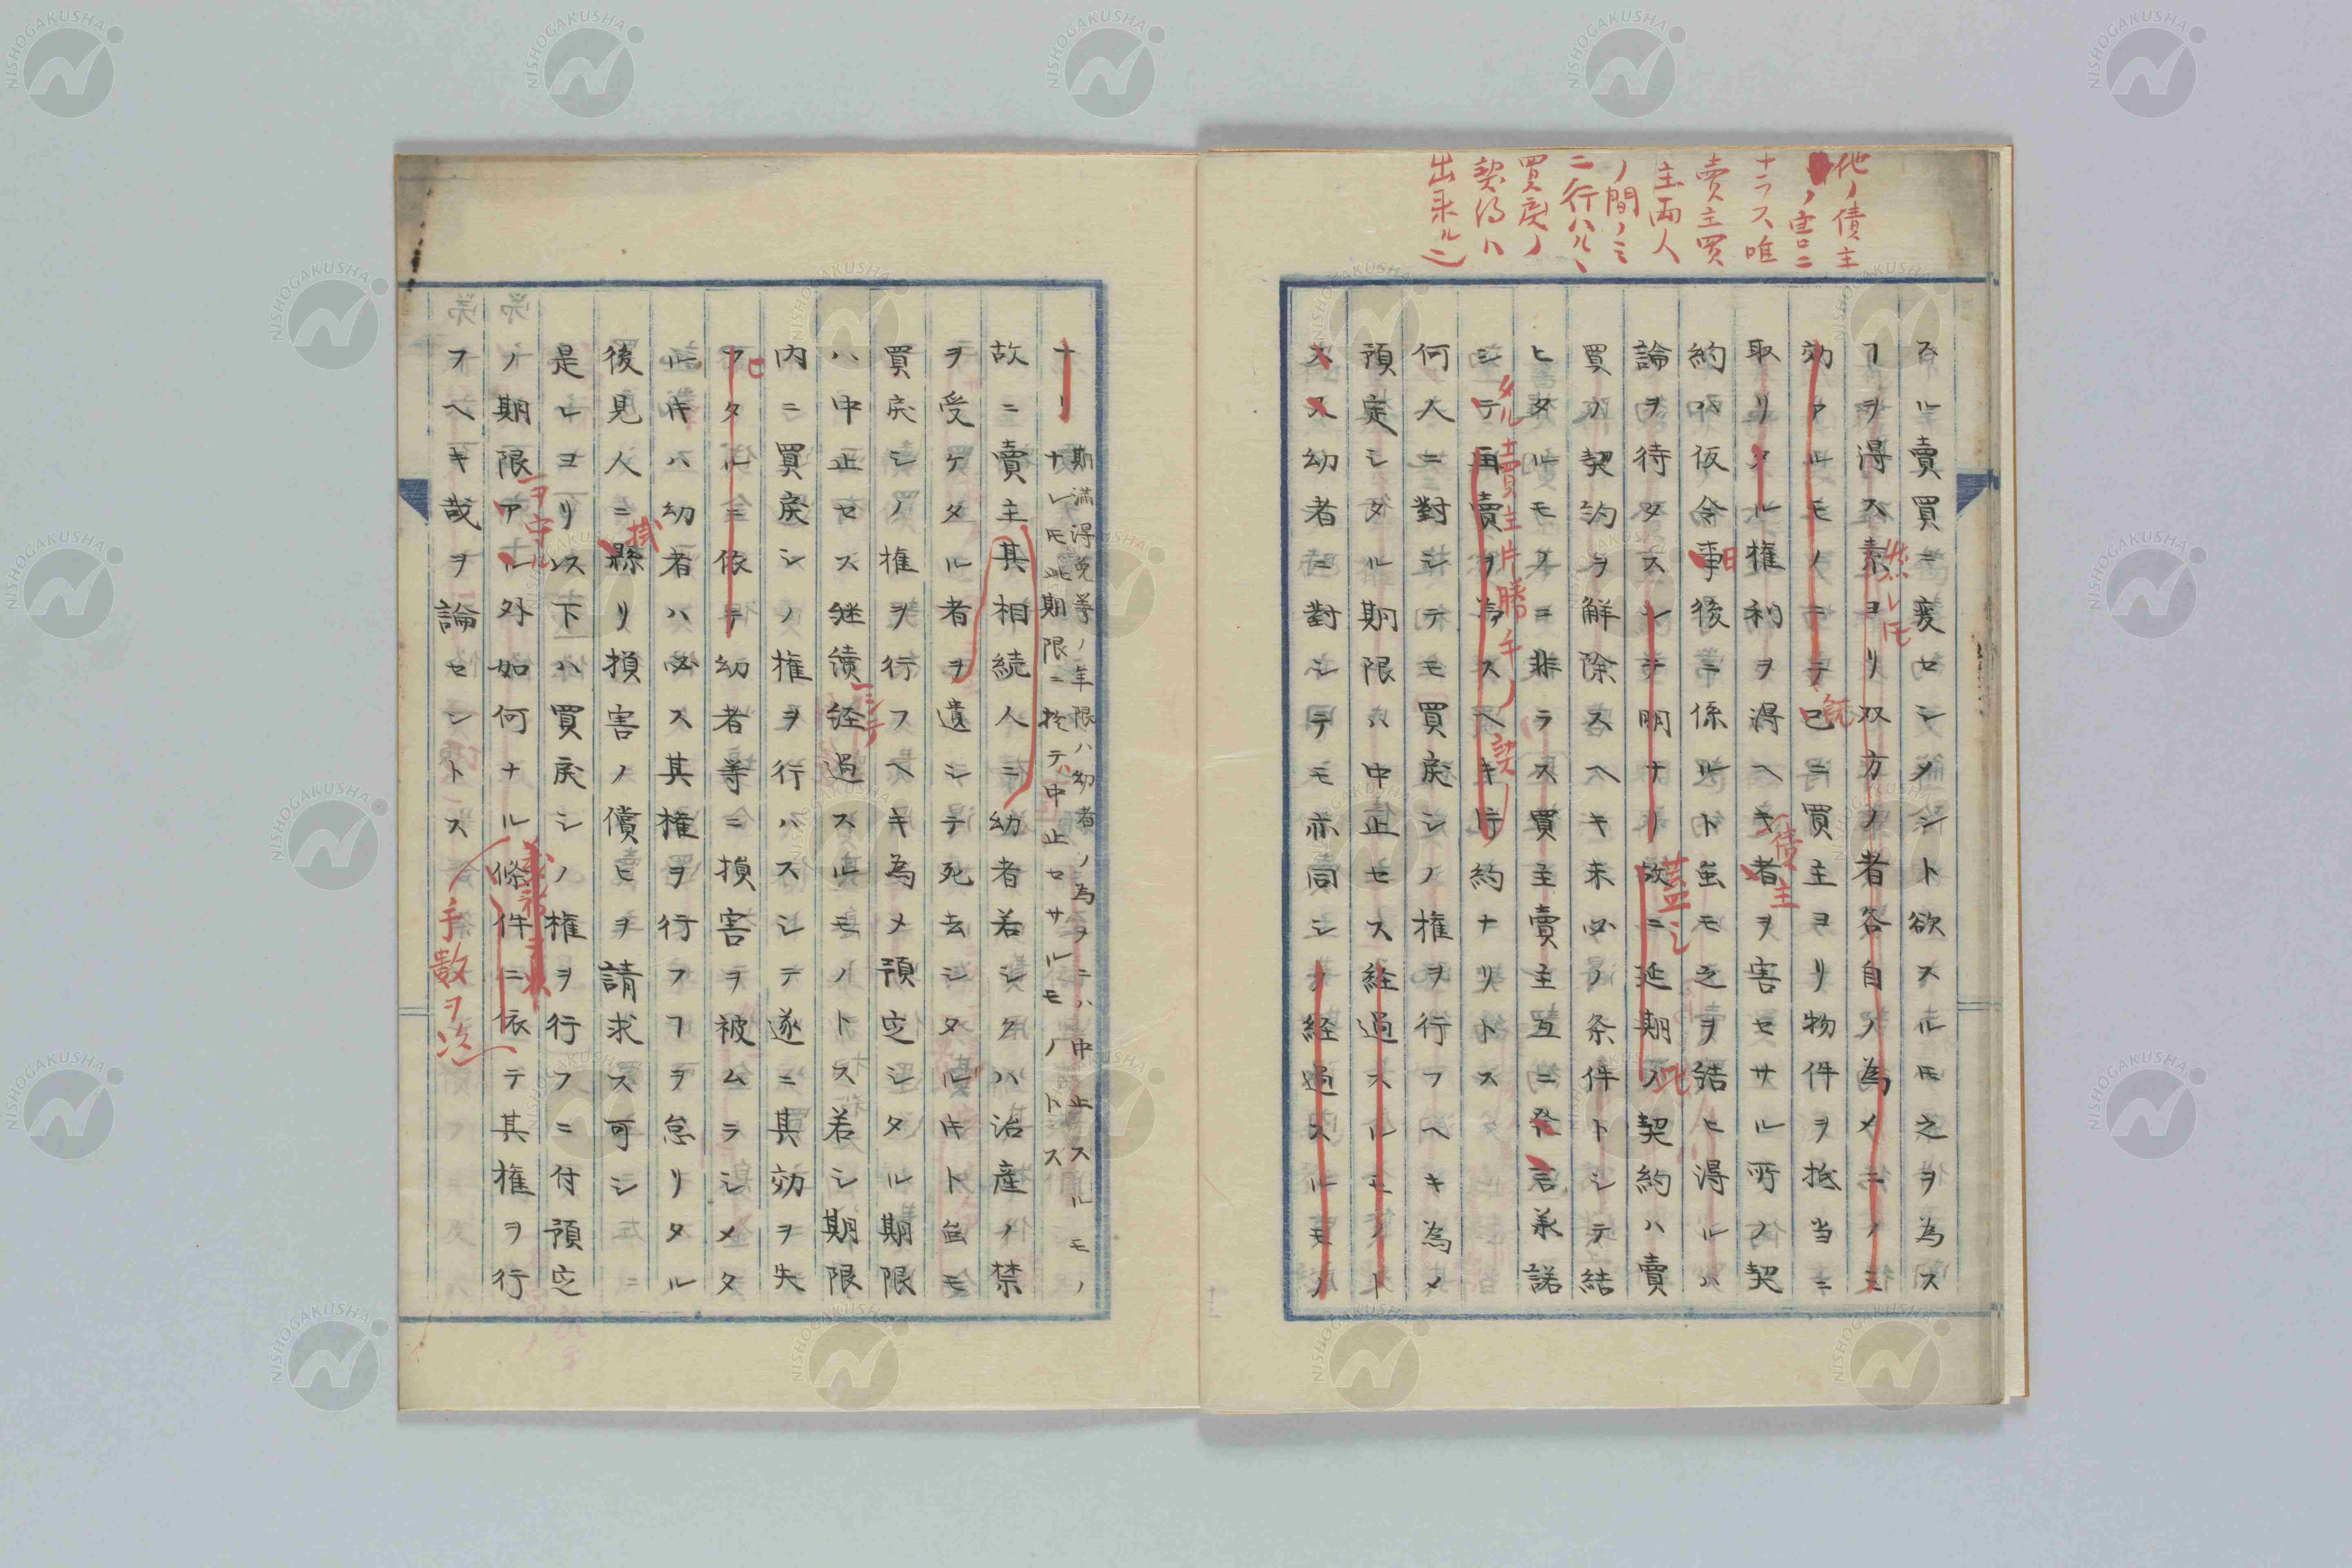 他ノ債主
ノ害ニ
ナラス唯
賣主買
主両人
ノ間ノミ
ニ行ハル丶
買戻ノ
契約ハ
出来ル
スル賣買ニ変セシメント欲スルモ之ヲ為ス
ヿヲ得ス素ヨリ双方ノ者各自ノ為メニノミ
然レ𪜈
効アルモノニテ已ニ買主ヨリ物件ヲ抵当ニ
既
取リタル権利ヲ得ヘキ者ヲ害セサル所ノ契
債主
約ハ仮令事後ニ係ルト虽モ之ヲ結ヒ得ルハ
日
論ヲ待タスシテ明ナリ故ニ延期ノ契約ハ賣
蓋シ
此
買ノ契約ヲ解除スヘキ未必ノ条件トシテ結
ヒタルモノニ非ラス買主賣主互ニ発言承諾
シテ再賣ヲ為スヘキ片約ナリトス
タル賣主片勝手ノ契
何人ニ對シテモ買戻シノ権ヲ行フヘキ為メ
預定シタル期限ハ中止セス経過スルモノト
ス又幼者ニ對シテモ亦同シク経過スルモノ
ナリ
期満得免等ノ年限ハ幼者ノ為ヲニハ中止スルモノ
ナレ𪜈此期限ニ於テハ中止セサルモノトス
故ニ賣主其相続人ニ幼者若シクハ治産ノ禁
ヲ受ケタル者ヲ遺シテ死去シタル𪜈ト虽モ
買戻シノ権ヲ行フヘキ為メ預定シタル期限
ハ中止セス継続経過スルモノトス若シ期限
シテ
内ニ買戻シノ権ヲ行ハスシテ遂ニ其効ヲ失
フタルニ依テ幼者等ニ損害ヲ被ムラシメタ
ヒ
ルキハ幼者ハ必ス其権ヲ行フヿヲ怠リタル
後見人ニ懸リ損害ノ償ヒヲ請求ス可シ
掛
是レヨリ以下ハ買戻シノ権ヲ行フニ付預定
ノ期限アル外如何ナル條件ニ依テ其権ヲ行
ヲ守ル
フヘキ哉ヲ論セントス
手數ヲ